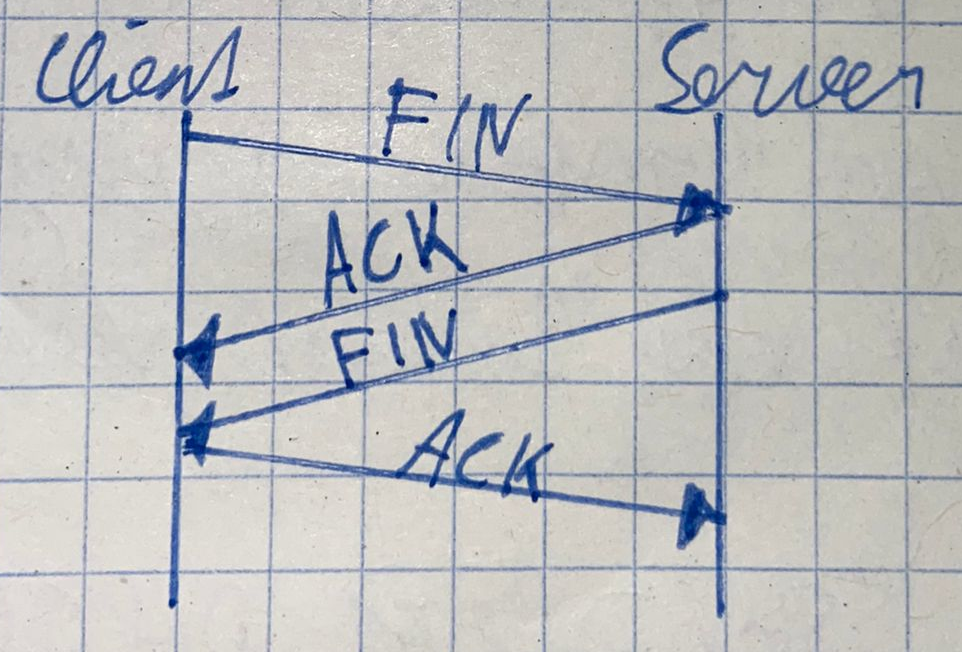 Client Server
FIN
ACK
FIN
ACK